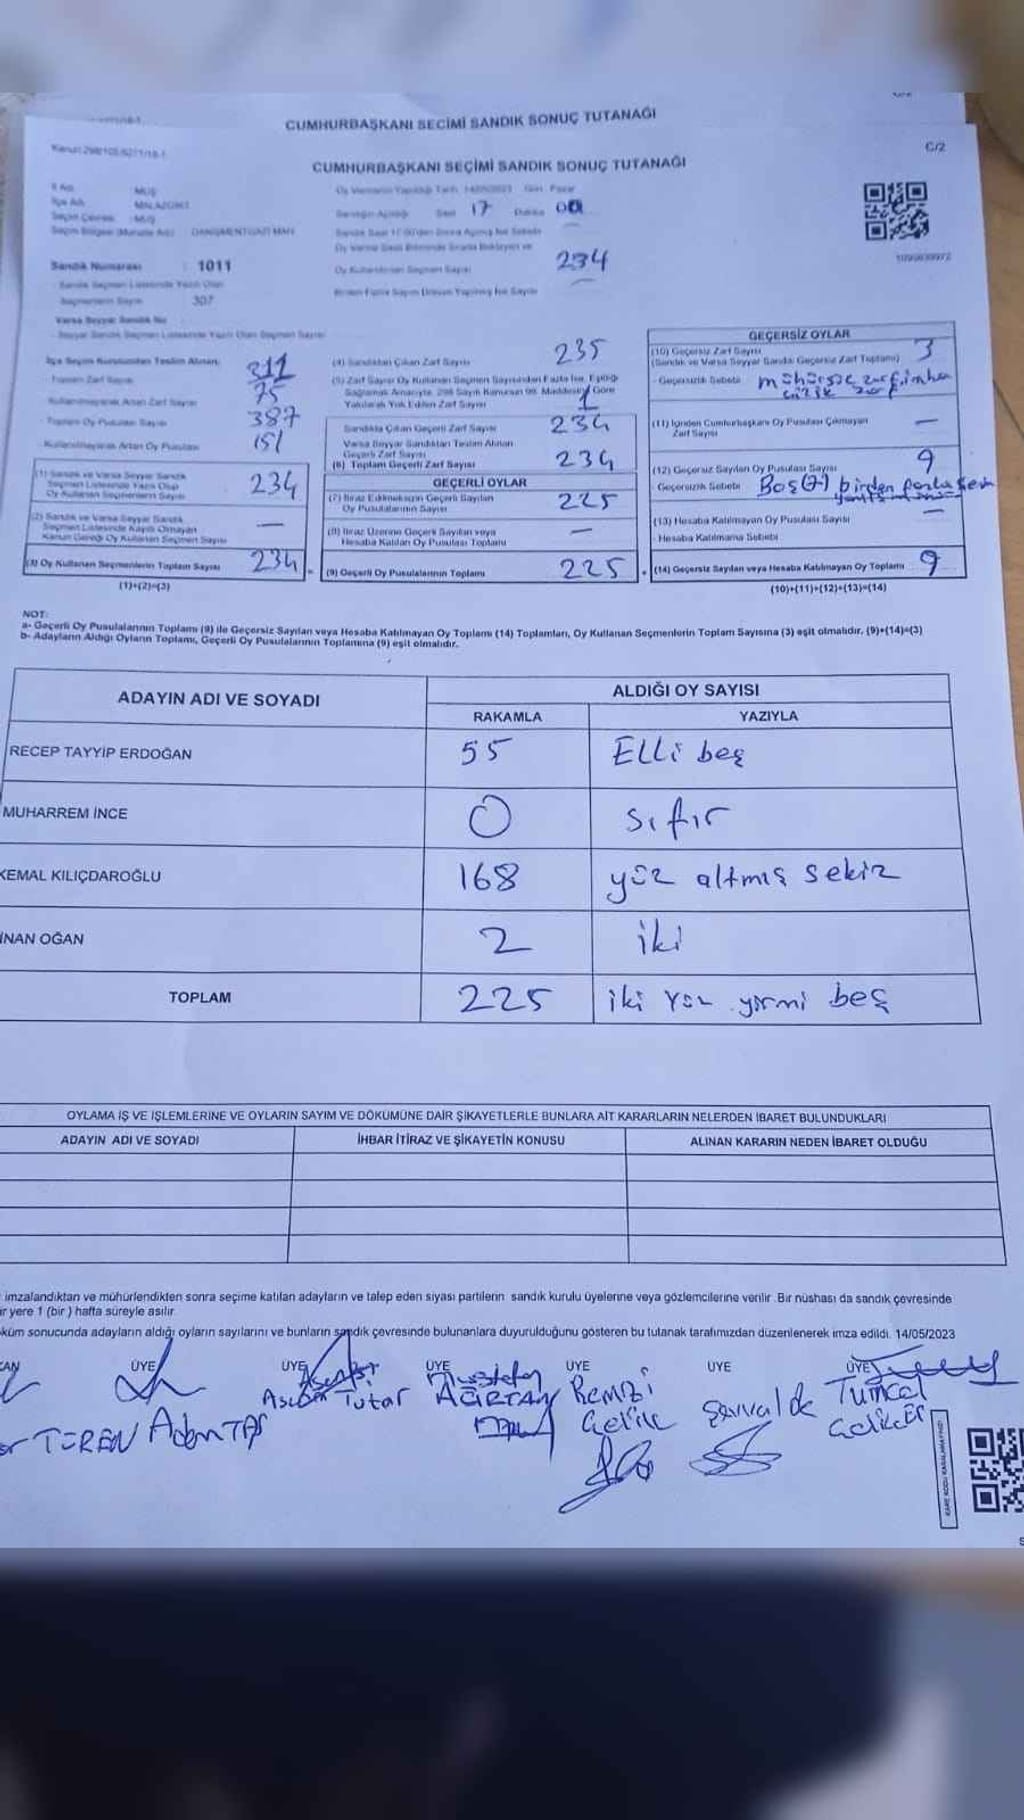 CUMHURBAŞKANI SECİMİ SANDIK SONUÇ TUTANAĞI
C/2
CUMHURBAŞKANI SEÇİMİ SANDIK SONUÇ TUTANAĞI
İl Adı MUŞ
İlçe Adı MALAZGİRT
Seçim Çevresi MUŞ
17 00
Sandık Numarası : 1011
307
Oy Kullandıran Seçmen Sayısı 234
Toplam Zarf Sayısı 75
Toplam Oy Pusulası Sayısı 387
151
(1) Sandık ve Varsa Seyyar Sandık
Seçmen Listesinde Yazılı Olup
Oy Kullanan Seçmenlerin Sayısı 234
(2) Sandık ve Varsa Seyyar Sandık
Seçmen Listesinde Kayıtlı Olmayan
Kanun Gereği Oy Kullanan Seçmen Sayısı —
(3) Oy Kullanan Seçmenlerin Toplam Sayısı 234
(1)+(2)=(3)
(4) Sandıktan Çıkan Zarf Sayısı 235
(5) Zarf Sayısı Oy Kullanan Seçmen Sayısından Fazla İse, Eşitliği
Sağlamak Amacıyla, 298 Sayılı Kanunun 98. Maddesine Göre
Yakılarak Yok Edilen Zarf Sayısı 1
Sandıkta Çıkan Geçerli Zarf Sayısı 234
Varsa Seyyar Sandıktan Teslim Alınan
Geçerli Zarf Sayısı
(6) Toplam Geçerli Zarf Sayısı 234
GEÇERLİ OYLAR
(7) İtiraz Edilmeksizin Geçerli Sayılan
Oy Pusulalarının Sayısı 225
(8) İtiraz Üzerine Geçerli Sayılan veya
Hesaba Katılan Oy Pusulası Toplamı —
(9) Geçerli Oy Pusulalarının Toplamı 225
GEÇERSİZ OYLAR
(10) Geçersiz Zarf Sayısı
(Sandık ve Varsa Seyyar Sandık Geçersiz Zarf Toplamı) 3
Geçersizlik Sebebi mühürsüz zarf,
(11) İçinden Cumhurbaşkanı Oy Pusulası Çıkmayan
Zarf Sayısı —
(12) Geçersiz Sayılan Oy Pusulası Sayısı 9
Geçersizlik Sebebi Boş(7) birden fazla
(13) Hesaba Katılmayan Oy Pusulası Sayısı —
Hesaba Katılmama Sebebi
(14) Geçersiz Sayılan veya Hesaba Katılmayan Oy Toplamı 9
(10)+(11)+(12)+(13)=(14)
NOT:
a- Geçerli Oy Pusulalarının Toplamı (9) ile Geçersiz Sayılan veya Hesaba Katılmayan Oy Toplamı (14) Toplamları, Oy Kullanan Seçmenlerin Toplam Sayısına (3) eşit olmalıdır. (9)+(14)=(3)
b- Adayların Aldığı Oyların Toplamı, Geçerli Oy Pusulalarının Toplamına (9) eşit olmalıdır.
ADAYIN ADI VE SOYADI ALDIĞI OY SAYISI
RAKAMLA YAZIYLA
RECEP TAYYİP ERDOĞAN 55 Elli beş
MUHARREM İNCE 0 sıfır
KEMAL KILIÇDAROĞLU 168 yüz altmış sekiz
İNAN OĞAN 2 iki
TOPLAM 225 iki yüz yirmi beş
OYLAMA İŞ VE İŞLEMLERİNE VE OYLARIN SAYIM VE DÖKÜMÜNE DAİR ŞİKAYETLERLE BUNLARA AİT KARARLARIN NELERDEN İBARET BULUNDUKLARI
ADAYIN ADI VE SOYADI İHBAR İTİRAZ VE ŞİKAYETİN KONUSU ALINAN KARARIN NEDEN İBARET OLDUĞU
imzalandıktan ve mühürlendikten sonra seçime katılan adayların ve talep eden siyasi partilerin sandık kurulu üyelerine veya gözlemcilerine verilir. Bir nüshası da sandık çevresinde
ir yere 1 (bir) hafta süreyle asılır
küm sonucunda adayların aldığı oyların sayılarını ve bunların sandık çevresinde bulunanlara duyurulduğunu gösteren bu tutanak tarafımızdan düzenlenerek imza edildi. 14/05/2023
KAN ÜYE ÜYE ÜYE ÜYE ÜYE ÜYE
TEREN Adem TAŞ Tutar AĞIRTAN Remzi Çelik Tuncel
KARE KODU KARALAMAYINIZ!